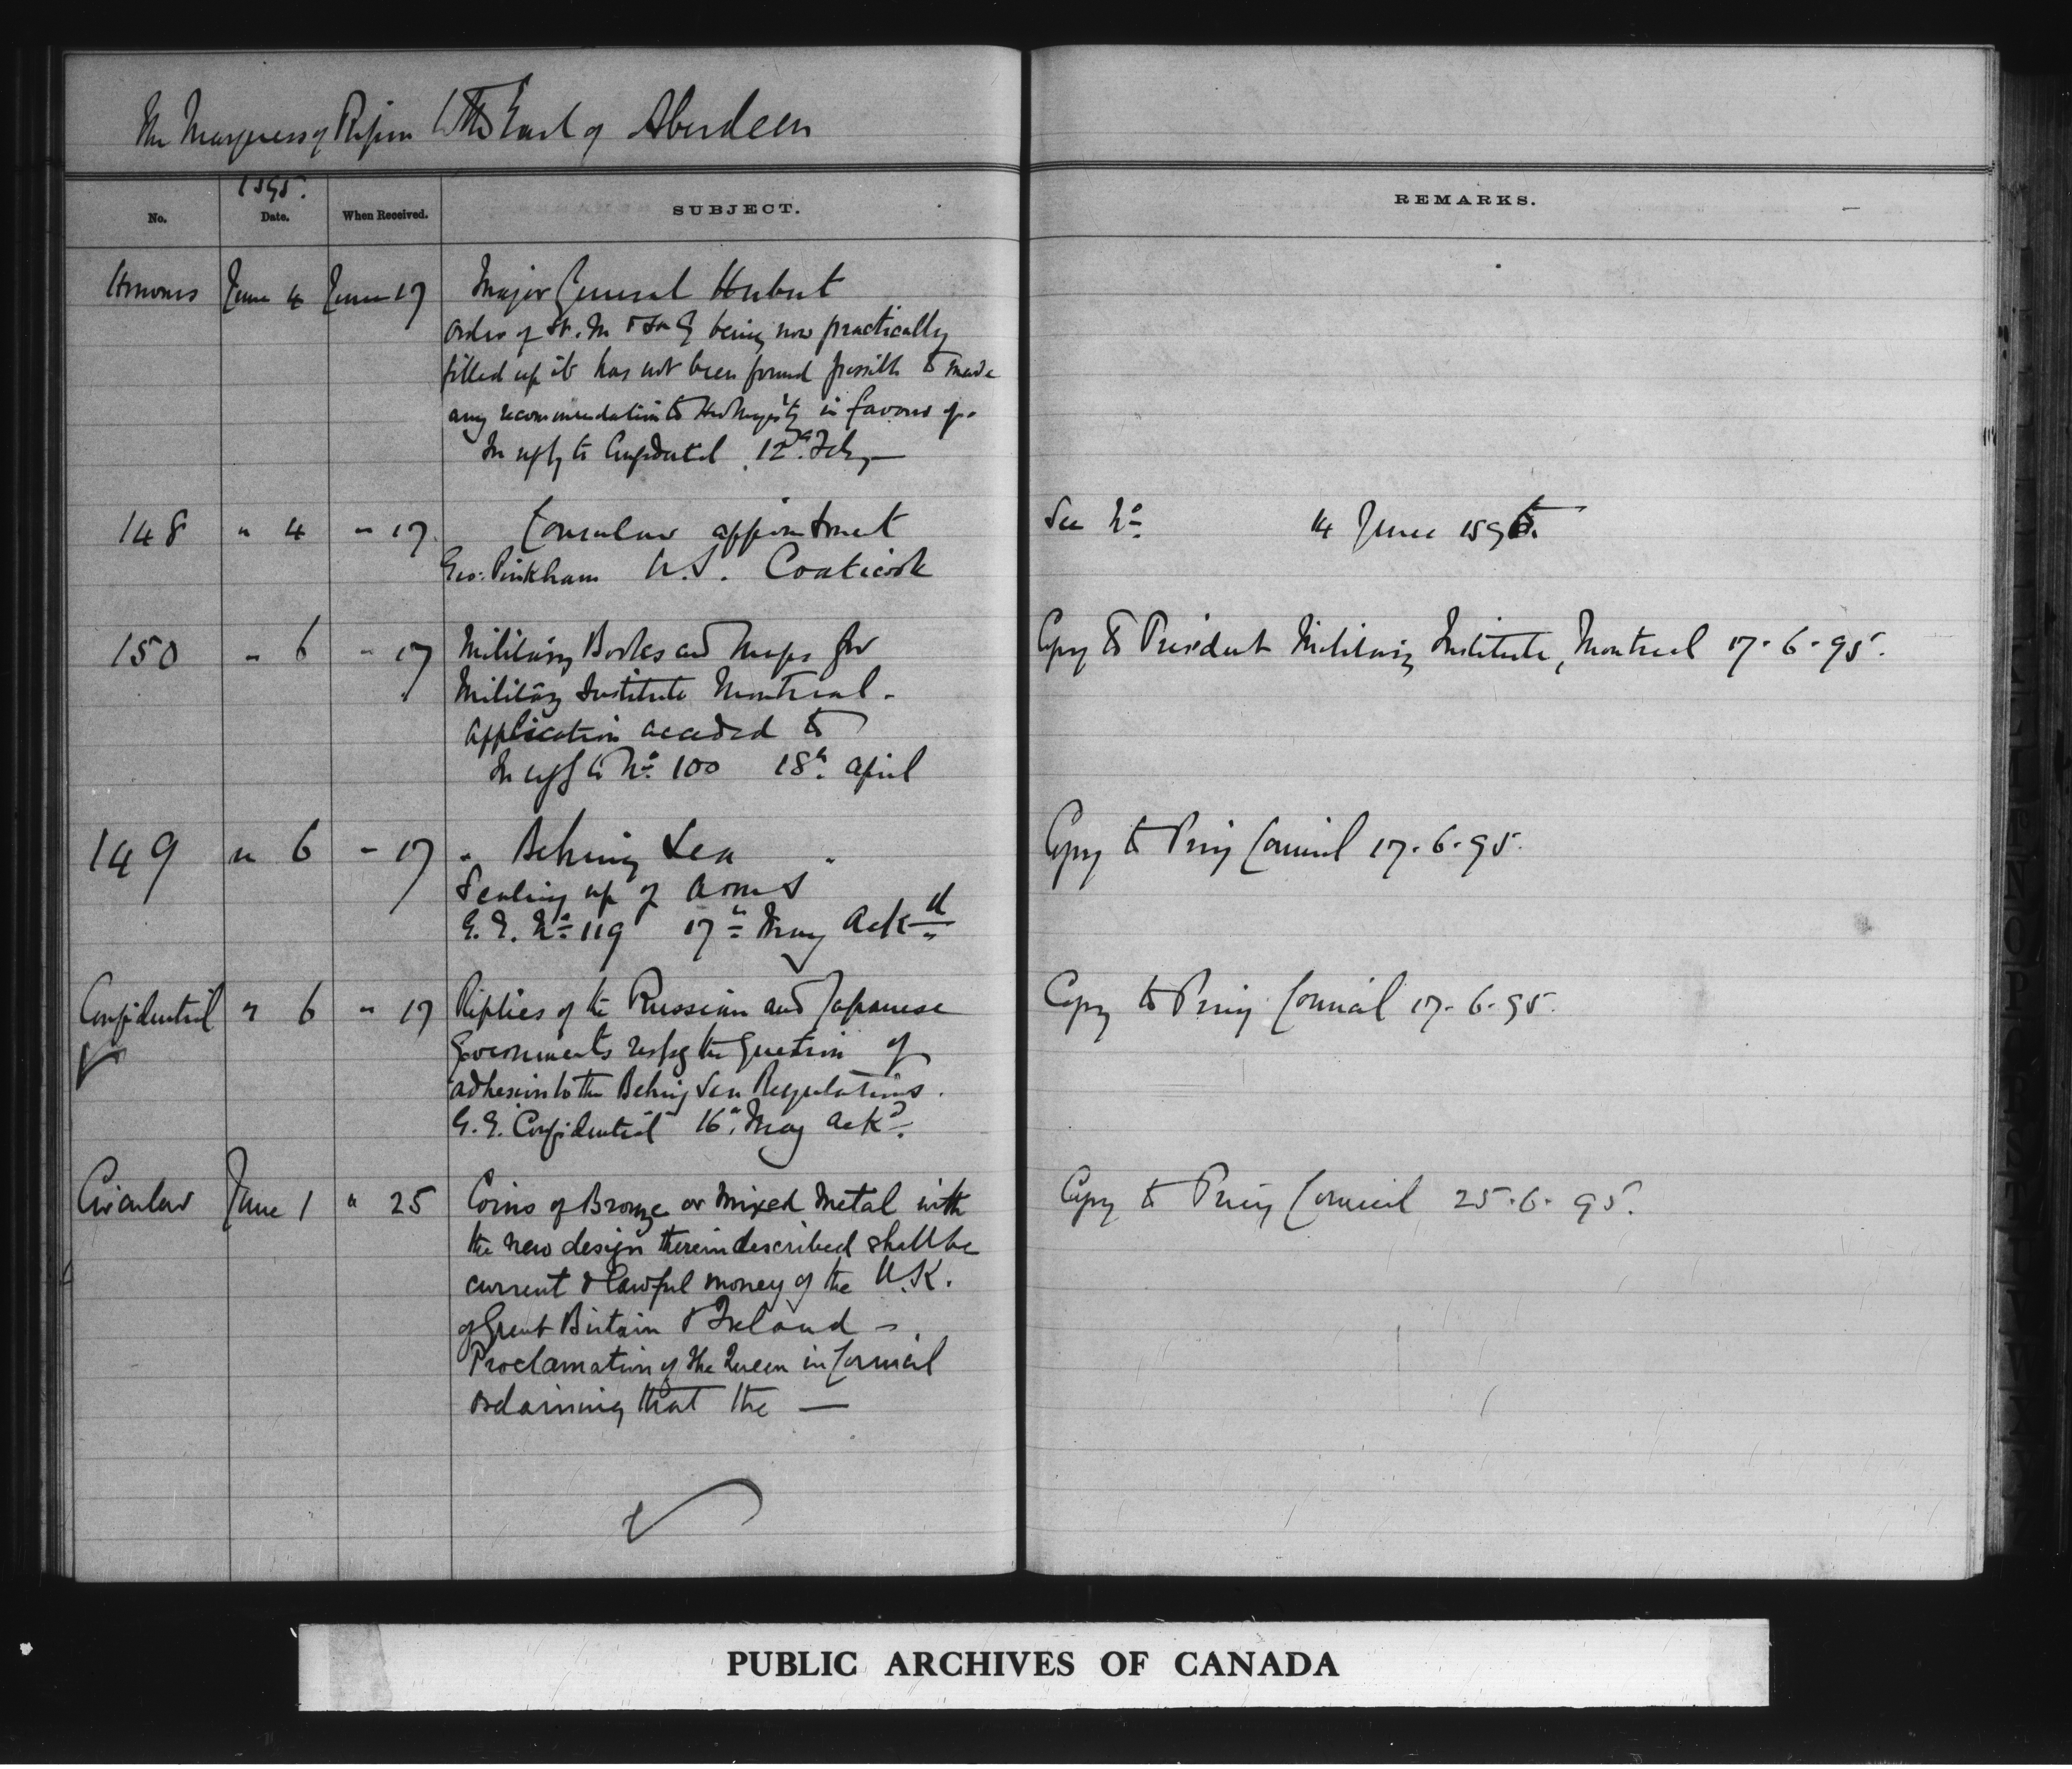 The Marquess of Ripon to the Earl of Aberdeen
1895.
No. Date. When Received. SUBJECT. REMARKS.
Honours June 4 June 17 Major General Herbert
Order of St. M & St. G being now practically
filled up it has not been found possible to make
any recommendation to Her Majesty in favour of.
In reply to Confidential 12th Feby —
148 " 4 " 17 Consular appointment See No 14 June 1895.
Geo: Pinkham U.S. Coaticook
150 " 6 " 17 Military Books and Maps for Copy to President Military Institute, Montreal 17-6-95.
Military Institute Montreal -
application acceded to
In reply to No 100 18th April
149 " 6 " 17 " Behring Sea " Copy to Privy Council 17-6-95.
Sealing up of arms
G.G. No 119 17th May Ackd
Confidential " 6 " 17 Replies of the Russian and Japanese Copy to Privy Council 17-6-95.
Governments respg the question of
adhesion to the Behring Sea Regulations.
G.G. Confidential 16th May ackd.
Circular June 1 " 25 Coins of Bronze or mixed metal with Copy to Privy Council 25-6-95.
the new design therein described shall be
current & lawful money of the U.K.
of Great Britain & Ireland —
Proclamation of the Queen in Council
ordaining that the —
PUBLIC ARCHIVES OF CANADA